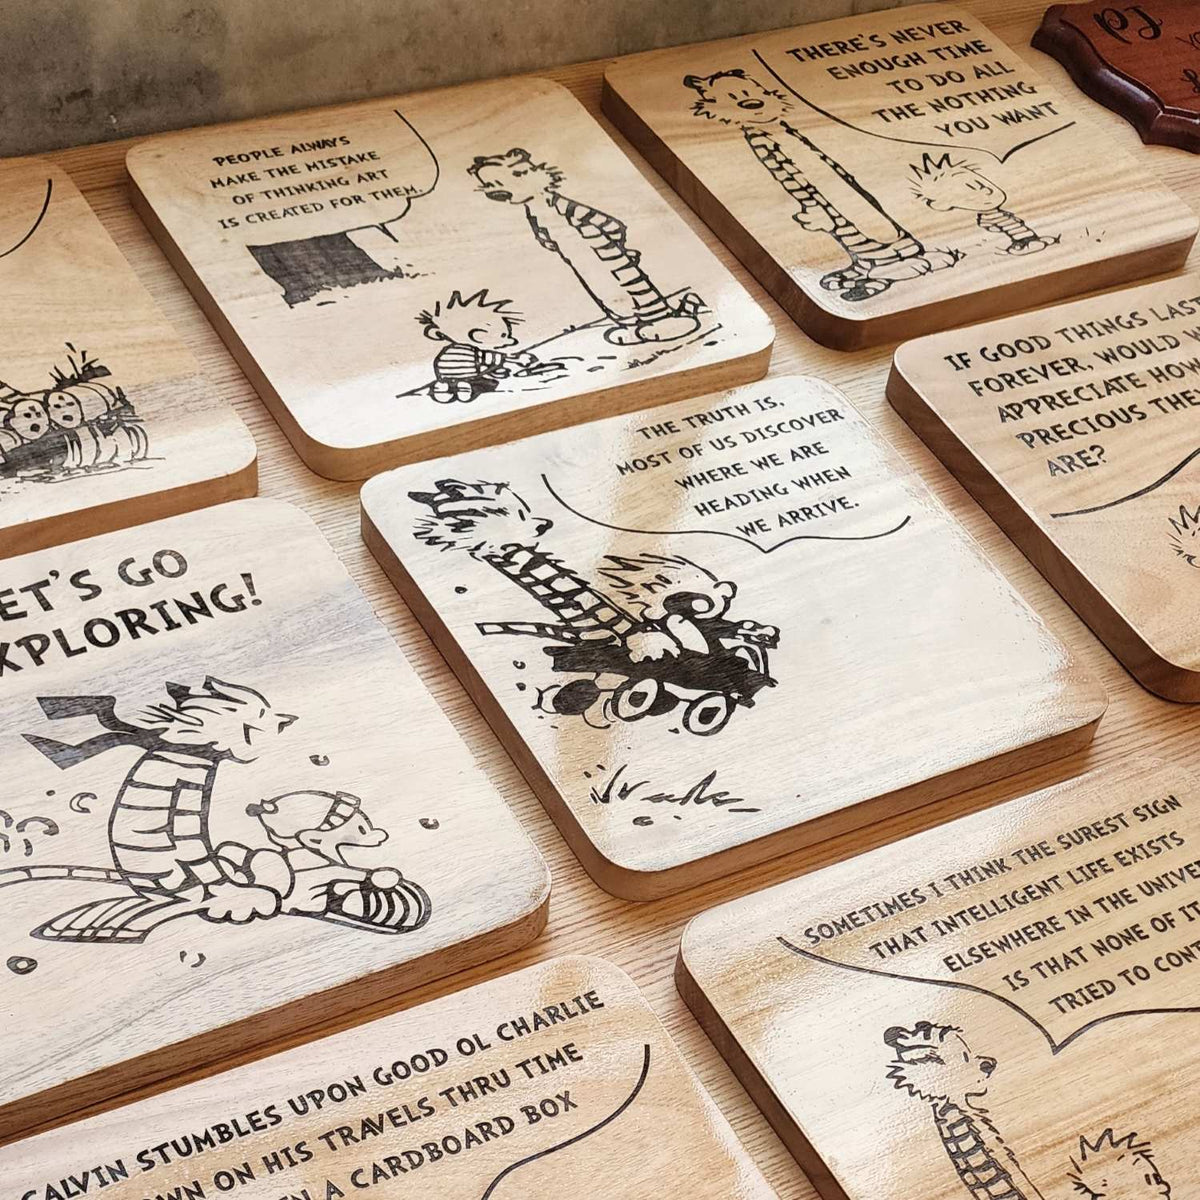 PEOPLE ALWAYS
MAKE THE MISTAKE
OF THINKING ART
IS CREATED FOR THEM.
THERE'S NEVER
ENOUGH TIME
TO DO ALL
THE NOTHING
YOU WANT
PJ
THE TRUTH IS,
MOST OF US DISCOVER
WHERE WE ARE
HEADING WHEN
WE ARRIVE.
IF GOOD THINGS LAST
FOREVER, WOULD
APPRECIATE HOW
PRECIOUS THE
ARE?
ET'S GO
XPLORING!
SOMETIMES I THINK THE SUREST SIGN
THAT INTELLIGENT LIFE EXISTS
ELSEWHERE IN THE UNIVE
IS THAT NONE OF IT
TRIED TO CONT
CALVIN STUMBLES UPON GOOD OL CHARLIE
OWN ON HIS TRAVELS THRU TIME
A CARDBOARD BOX